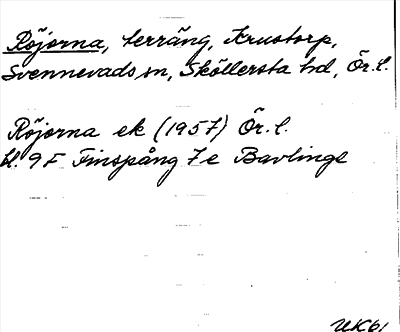 Röjorna, terräng, Krustorp,
Svennevads sn, Sköllersta hd, Ör. l.
Röjorna ek (1957) Ör. l.
bl. 9F Finspång 7e Bavlinge
UK61